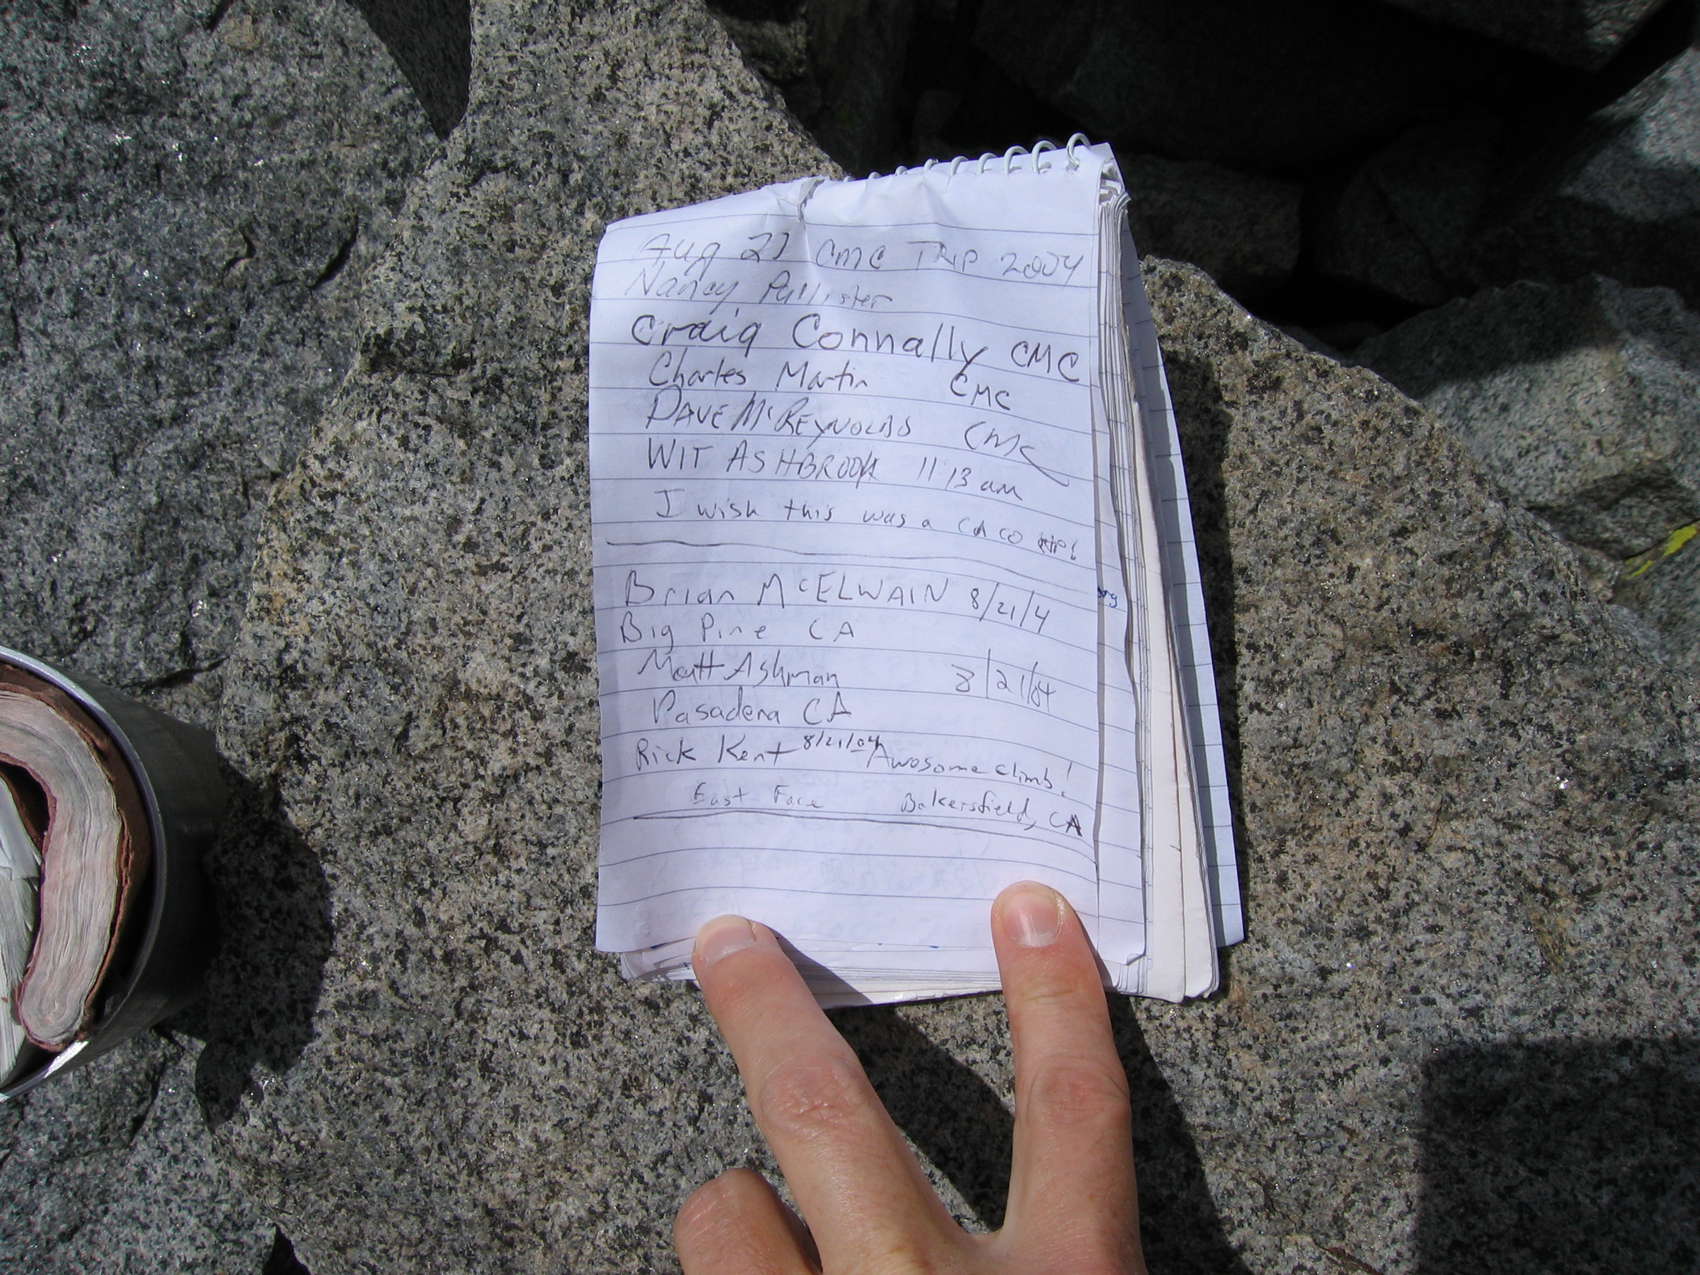 Aug 21 CMC TRIP 2004
Nancy Pallister
Craig Connally CMC
Charles Martin CMC
DAVE McREYNOLDS CMC
WIT ASHBROOK 11:13 am
I wish this was a CACO trip!
Brian McELWAIN 8/21/4
Big Pine CA
Matt Ashman 8/21/04
Pasadena CA
Rick Kent 8/21/04 Awosome climb!
East Face Bakersfield, CA